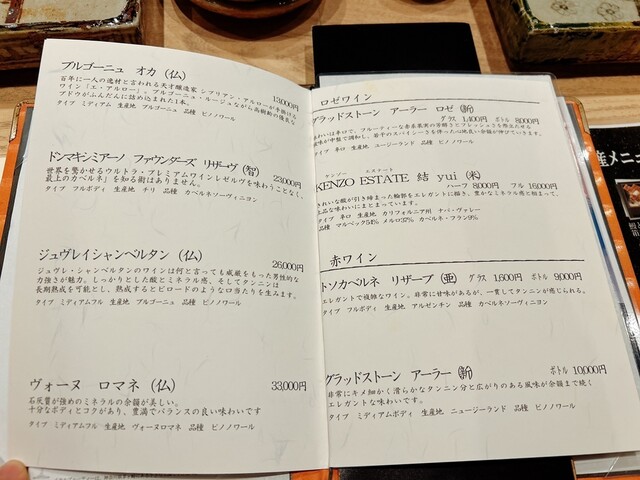 ブルゴーニュ オカ (仏)
13,000円
百年に一人の逸材と言われる天才醸造家 シプリアン・アルローが手掛ける
ワイン「エ・アルロー」。ブルゴーニュ・ルージュながら高樹齢の優良な
ブドウがふんだんに詰め込まれた1本。
タイプ ミディアム 生産地 ブルゴーニュ 品種 ピノノワール
ドンマキシミアーノ ファウンダーズ リザーヴ (智)
23,000円
世界を驚かせるウルトラ・プレミアムワインレゼルヴを味わうことなく、
最上のカベルネ」を知る術はありません。
タイプ フルボディ 生産地 チリ 品種 カベルネソーヴィニヨン
ジュヴレイシャンベルタン (仏)
26,000円
ジュヴレ・シャンベルタンのワインは何と言っても威厳をもった男性的な
力強さが魅力。しっかりとした酸とミネラル感、そしてタンニンは
長期熟成を可能とし、熟成するとビロードのような口当たりを生みます。
タイプ ミディアムフル 生産地 ブルゴーニュ 品種 ピノノワール
ヴォーヌ ロマネ (仏) 33,000円
石灰質が強めのミネラルの余韻が美しい。
十分なボディとコクがあり、豊満でバランスの良い味わいです
タイプ ミディアムフル 生産地 ヴォーヌロマネ 品種 ピノノワール
ロゼワイン
グラッドストーン アーラー ロゼ (新)
グラス 1,400円 ボトル 8,000円
味わいは辛口で、フルーティーな赤系果実の芳醇さとフレッシュさを
タイプ 辛口 生産地 ニュージーランド 品種 ピノノワール
ケンゾー エステート
KENZO ESTATE 結 yui (米)
ハーフ 8,000円 フル 16,000円
きれいな酸が引き締まった輪郭をエレガントに描き、豊かなミネラル感と相まって、
上品な味わいにまとまっています。
タイプ 辛口 生産地 カリフォルニア州 ナパ・ヴァレー
品種 マルベック54% メルロ37% カベルネ・フラン9%
赤ワイン
トソカベルネ リザーブ (亜) グラス 1,600円 ボトル 9,000円
エレガントで複雑なワイン。非常に甘味があるが、一貫してタンニンが感じられる。
タイプ フルボディ 生産地 アルゼンチン 品種 カベルネソーヴィニヨン
グラッドストーン アーラー (新) ボトル 10,000円
非常にキメ細かく滑らかなタンニン分と広がりのある風味が余韻まで続く
エレガントな味わいです。
タイプ ミディアムボディ 生産地 ニュージーランド 品種 ピノノワール
産メニ